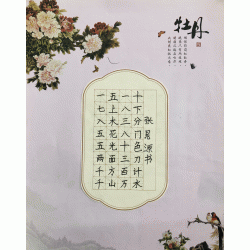 牡丹
十下分门色刀计水
一八三八十三百万
五上水花光面方山
一七八五五两千千
张易源书